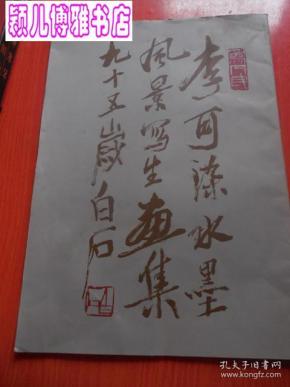 颖儿博雅书店
李可染水墨
风景写生画集
九十五岁白石
孔夫子旧书网